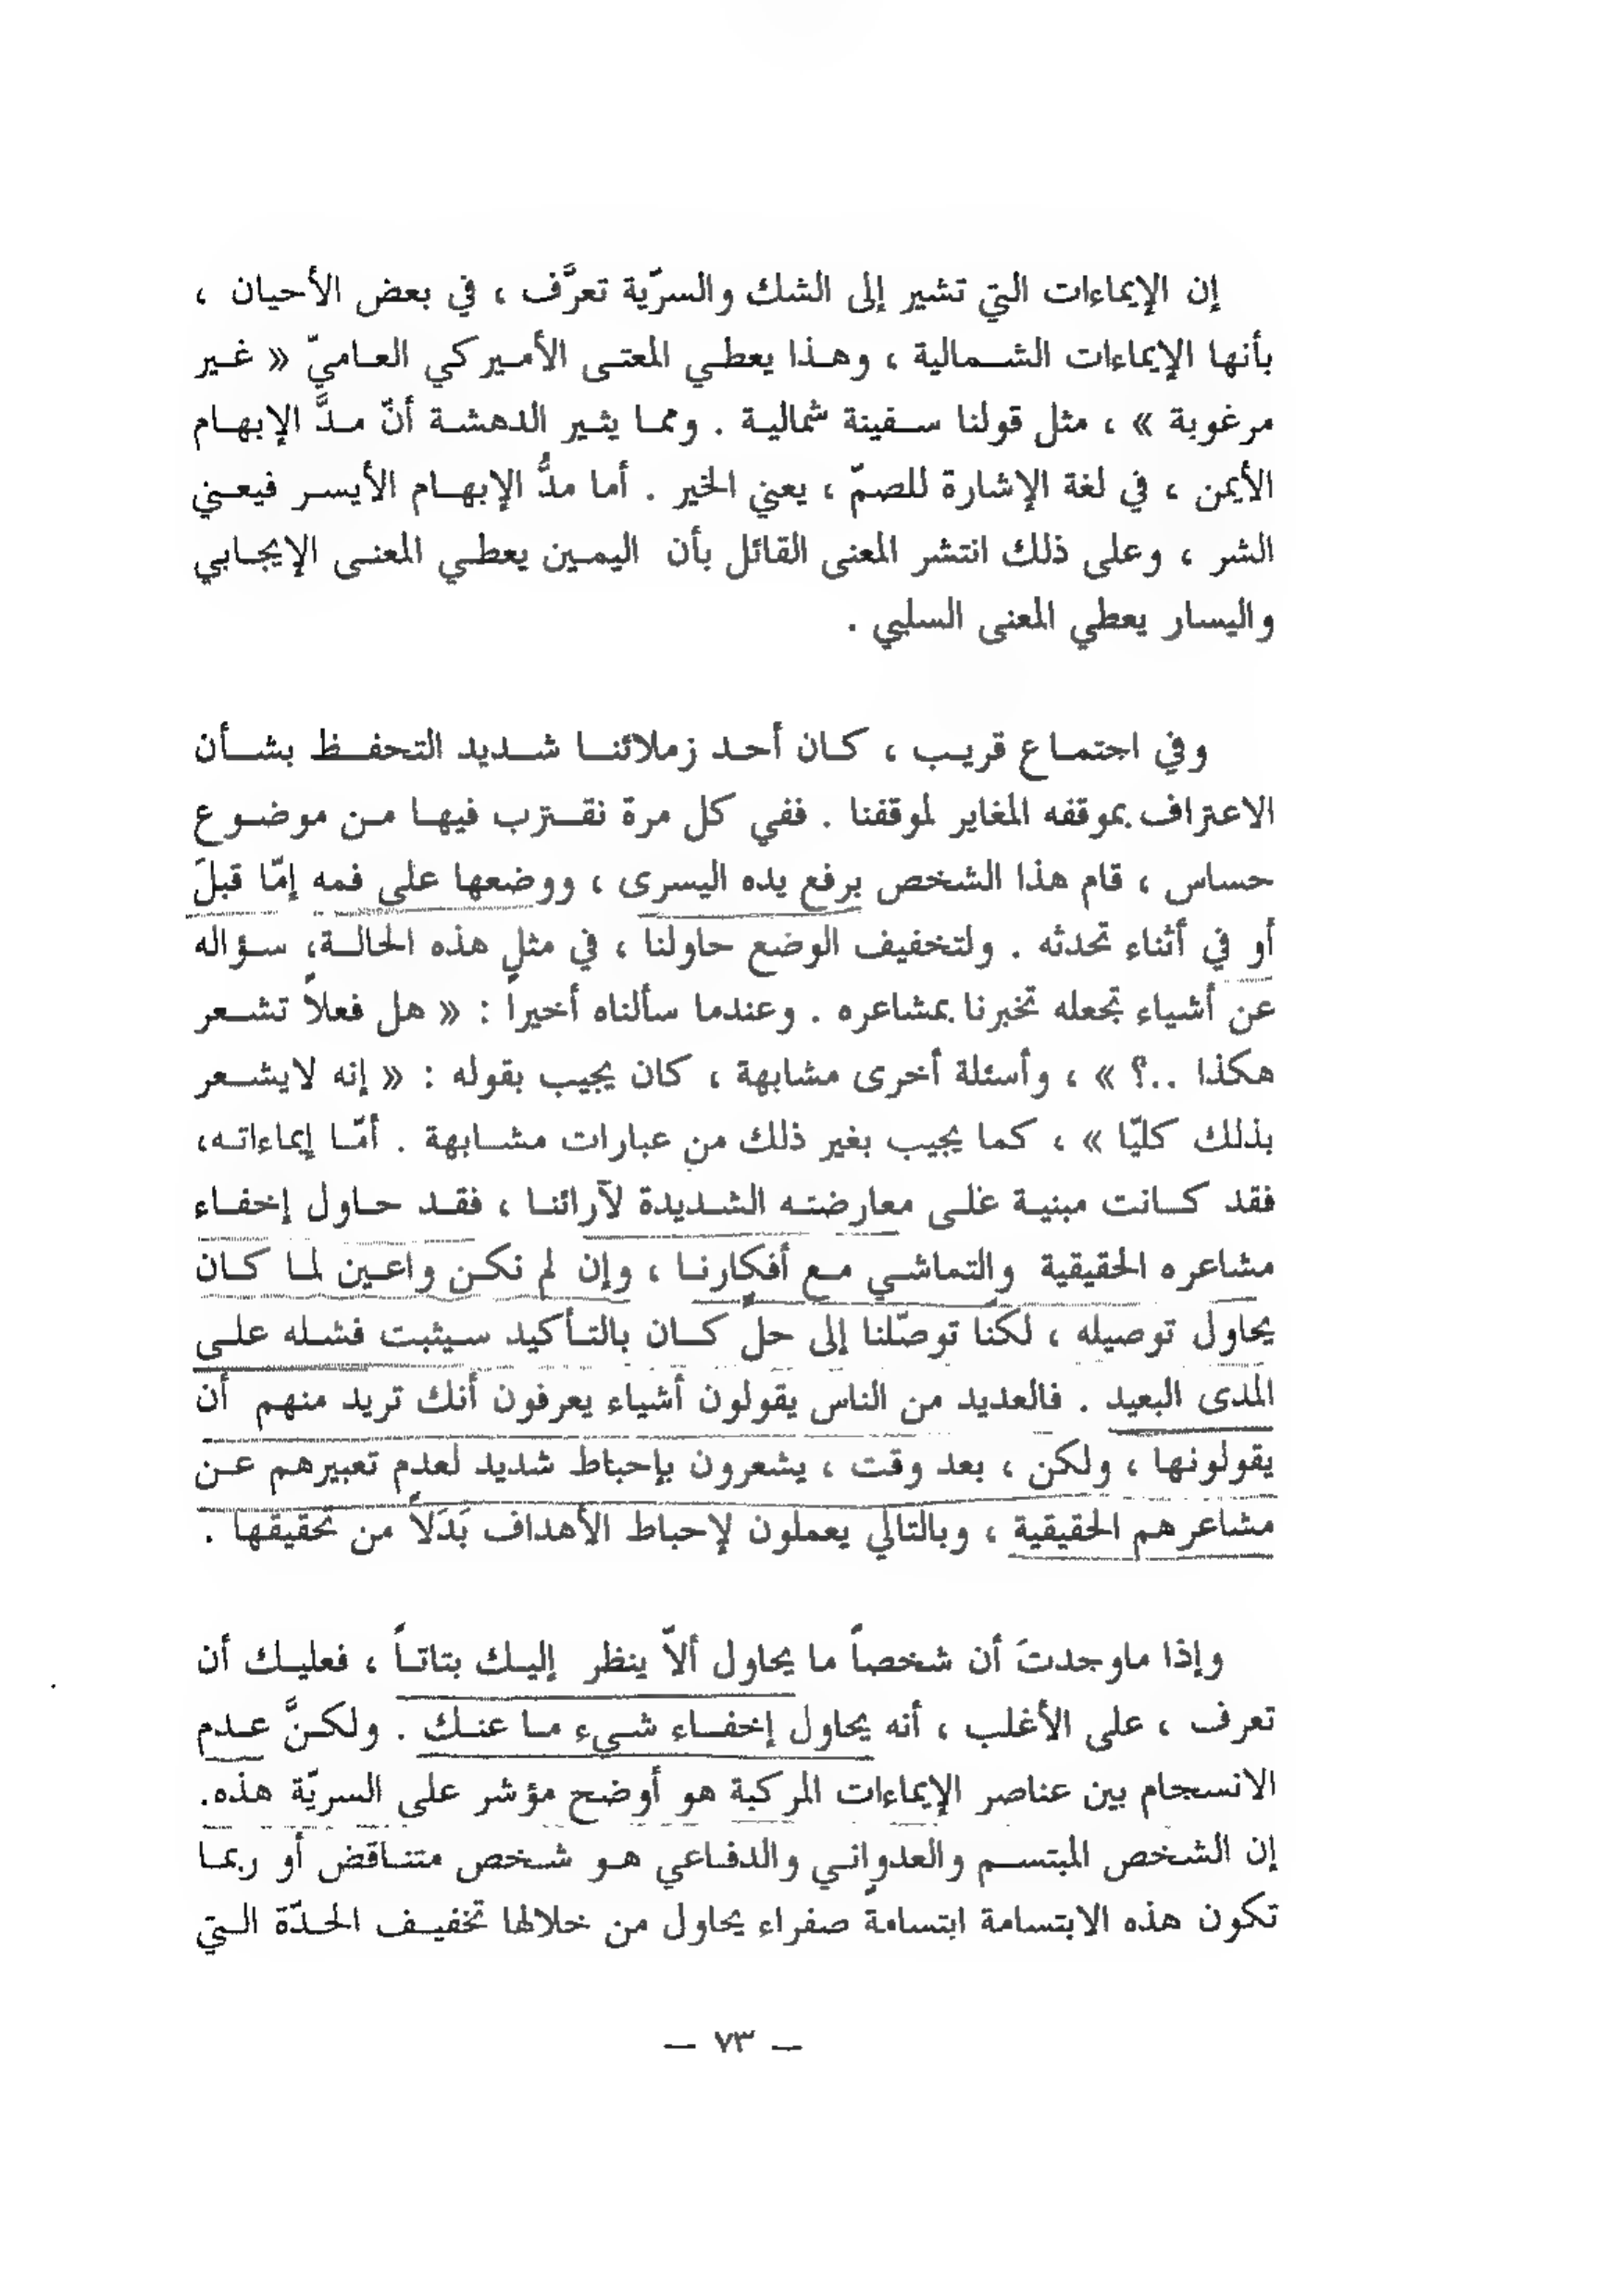 إن الإيماءات التي تشير إلى الشك والسرّية تعرَّف ، في بعض الأحيان ،
بأنها الإيماءات الشمالية ، وهذا يعطي المعتى الأميركي العاميّ « غير
مرغوبة » ، مثل قولنا سفينة شمالية . ومما يثير الدهشة أنّ مدَّ الإبهام
الأيمن ، في لغة الإشارة للصمّ ، يعني الخير . أما مدُّ الإبهام الأيسر فيعني
الشر ، وعلى ذلك انتشر المعنى القائل بأن اليمين يعطي المعنى الإيجابي
واليسار يعطي المعنى السلبي .
وفي اجتماع قريب ، كان أحد زملائنا شديد التحفظ بشأن
الاعتراف بموقفه المغاير لموقفنا . ففي كل مرة نقترب فيها من موضوع
حساس ، قام هذا الشخص برفع يده اليسرى ، ووضعها على فمه إمّا قبلَ
أو في أثناء تحدثه . ولتخفيف الوضع حاولنا ، في مثل هذه الحالة، سؤاله
عن أشياء تجعله تخبرنا بمشاعره . وعندما سألناه أخيراً : « هل فعلاً تشعر
هكذا ..؟ » ، وأسئلة أخرى مشابهة ، كان يجيب بقوله : « إنه لايشعر
بذلك كليّا » ، كما يجيب بغير ذلك من عبارات مشابهة . أمّا إيماءاته،
فقد كانت مبنية على معارضته الشديدة لآرائنا ، فقد حاول إخفاء
مشاعره الحقيقية والتماشي مع أفكارنا ، وإن لم نكن واعين لما كان
يحاول توصيله ، لكنا توصّلنا إلى حلٍّ كان بالتأكيد سيثبت فشله على
المدى البعيد . فالعديد من الناس يقولون أشياء يعرفون أنك تريد منهم أن
يقولونها ، ولكن ، بعد وقت ، يشعرون بإحباط شديد لعدم تعبيرهم عن
مشاعرهم الحقيقية ، وبالتالي يعملون لإحباط الأهداف بَدَلاً من تحقيقها .
وإذا ماوجدتَ أن شخصاً ما يحاول ألاّ ينظر إليك بتاتاً ، فعليك أن
تعرف ، على الأغلب ، أنه يحاول إخفاء شيء ما عنك . ولكنَّ عدم
الانسجام بين عناصر الإيماءات المركبة هو أوضح مؤشر على السريّة هذه.
إن الشخص المبتسم والعدواني والدفاعي هو شخص متناقض أو ربما
تكون هذه الابتسامة ابتسامةً صفراء يحاول من خلالها تخفيف الحدّة التي
— ٧٣ —